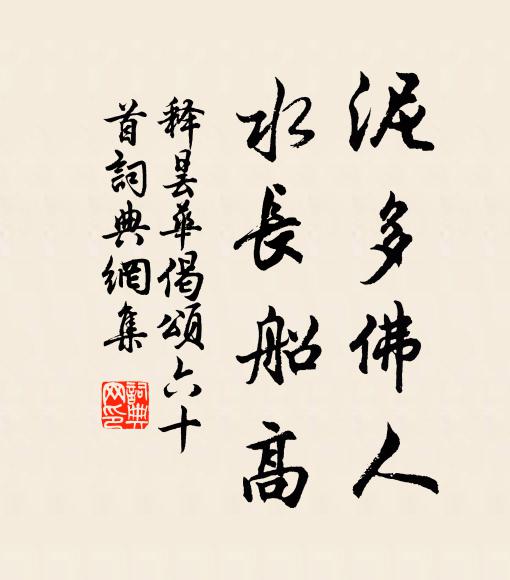 泥多佛人
水長船高
释昙華偈頌六十
首詞典網集
詞典网印